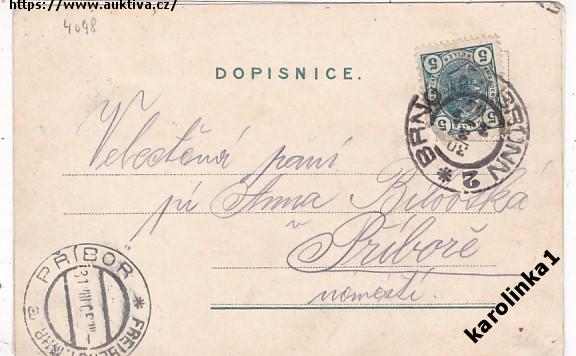 https://www.auktiva.cz/
4098
DOPISNICE.
5 5
5 5
BRNO
BRÜNN 2
30
Velectěná paní
pí Anna Bílovská
v
Příboře
náměstí.
PŘÍBOR
31
FREIBERG
karolinka1